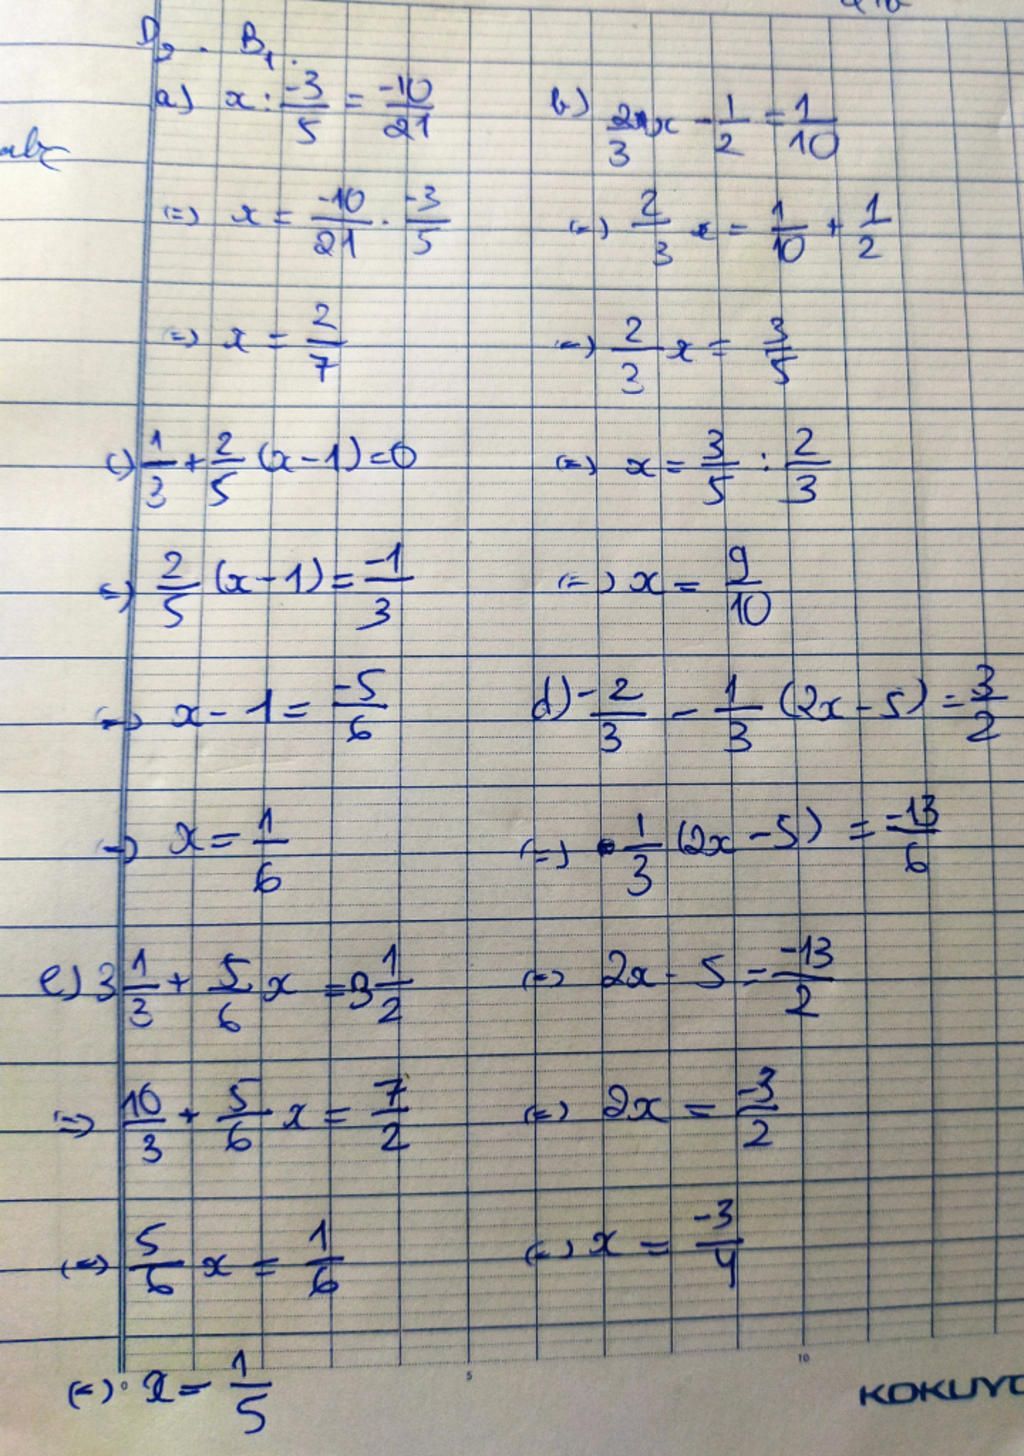 D2. B1.
a) x : -3/5 = -10/21
(=) x = -10/21 . -3/5
=) x = 2/7
b) 2/3 x - 1/2 = 1/10
(=) 2/3 x = 1/10 + 1/2
(=) 2/3 x = 3/5
(=) x = 3/5 : 2/3
(=) x = 9/10
c) 1/3 + 2/5 (x - 1) = 0
=) 2/5 (x - 1) = -1/3
(=) x - 1 = -5/6
=) x = 1/6
d) -2/3 - 1/3 (2x - 5) = 3/2
(=) 1/3 (2x - 5) = -13/6
(=) 2x - 5 = -13/2
(=) 2x = -3/2
(=) x = -3/4
e) 3 1/3 + 5/6 x = 3 1/2
=) 10/3 + 5/6 x = 7/2
(=) 5/6 x = 1/6
(=) x = 1/5
5
10
KOKUYO